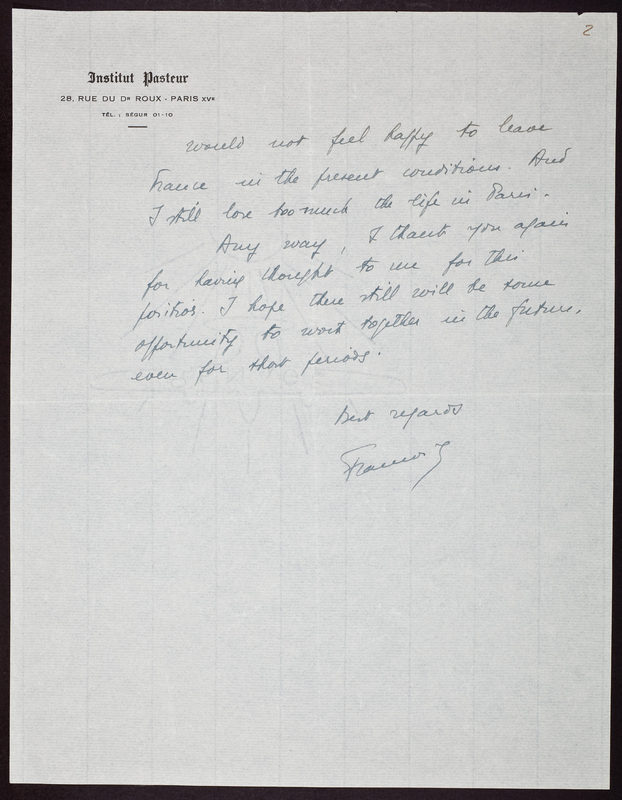 2
Institut Pasteur
28, RUE DU DR ROUX - PARIS XVE
TÉL. : SÉGUR 01-10
would not feel happy to leave
France in the present conditions. And
I still love too much the life in Paris.
Any way, I thank you again
for having thought to me for this
position. I hope there still will be some
opportunity to work together in the future,
even for short periods.
best regards
François